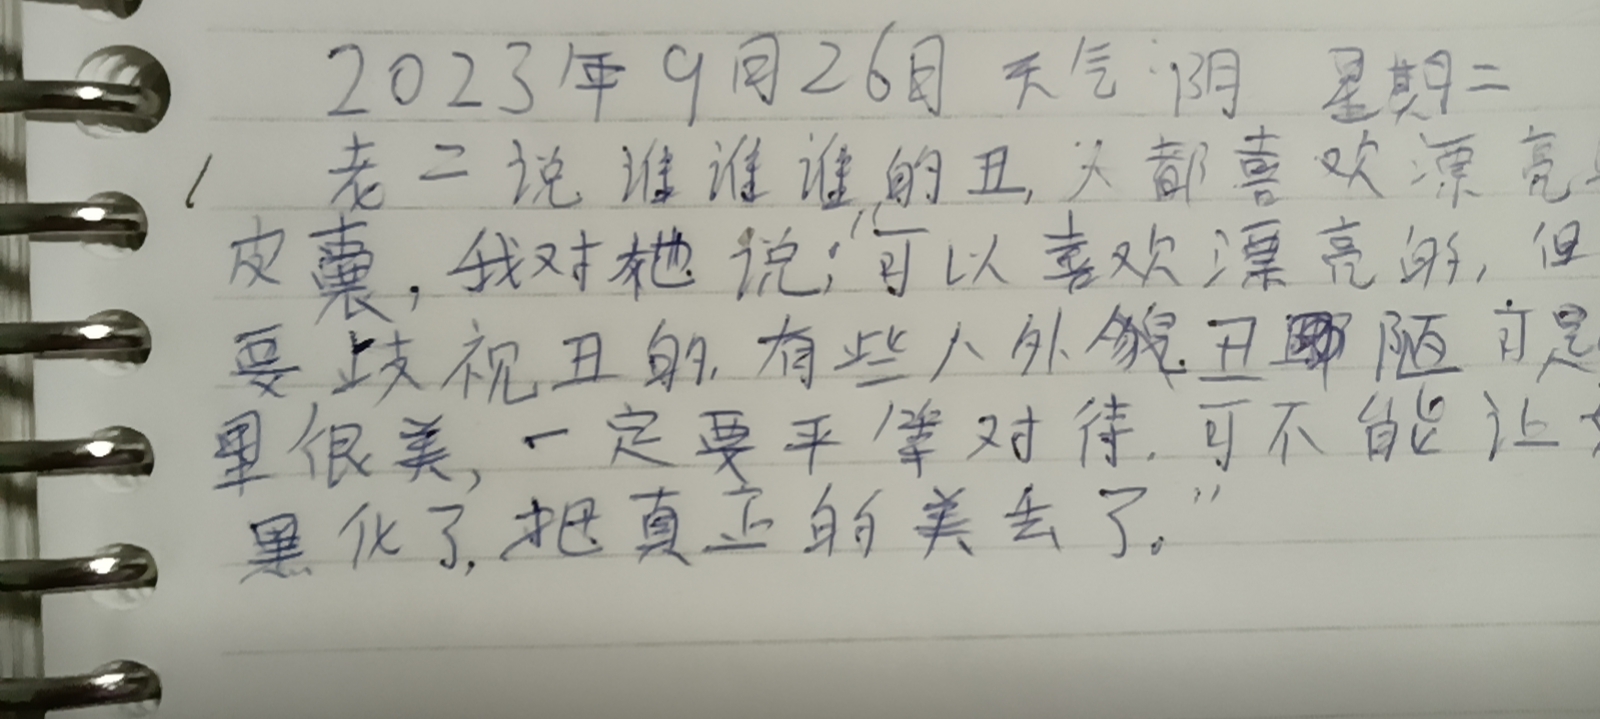 2023年9月26日 天气:阴 星期二
老二说谁谁谁的丑,人都喜欢漂亮
皮囊,我对她说:“可以喜欢漂亮的,但
要歧视丑的,有些人外貌丑陋可是
里很美,一定要平等对待.可不能让
黑化了,把真正的美丢了。”